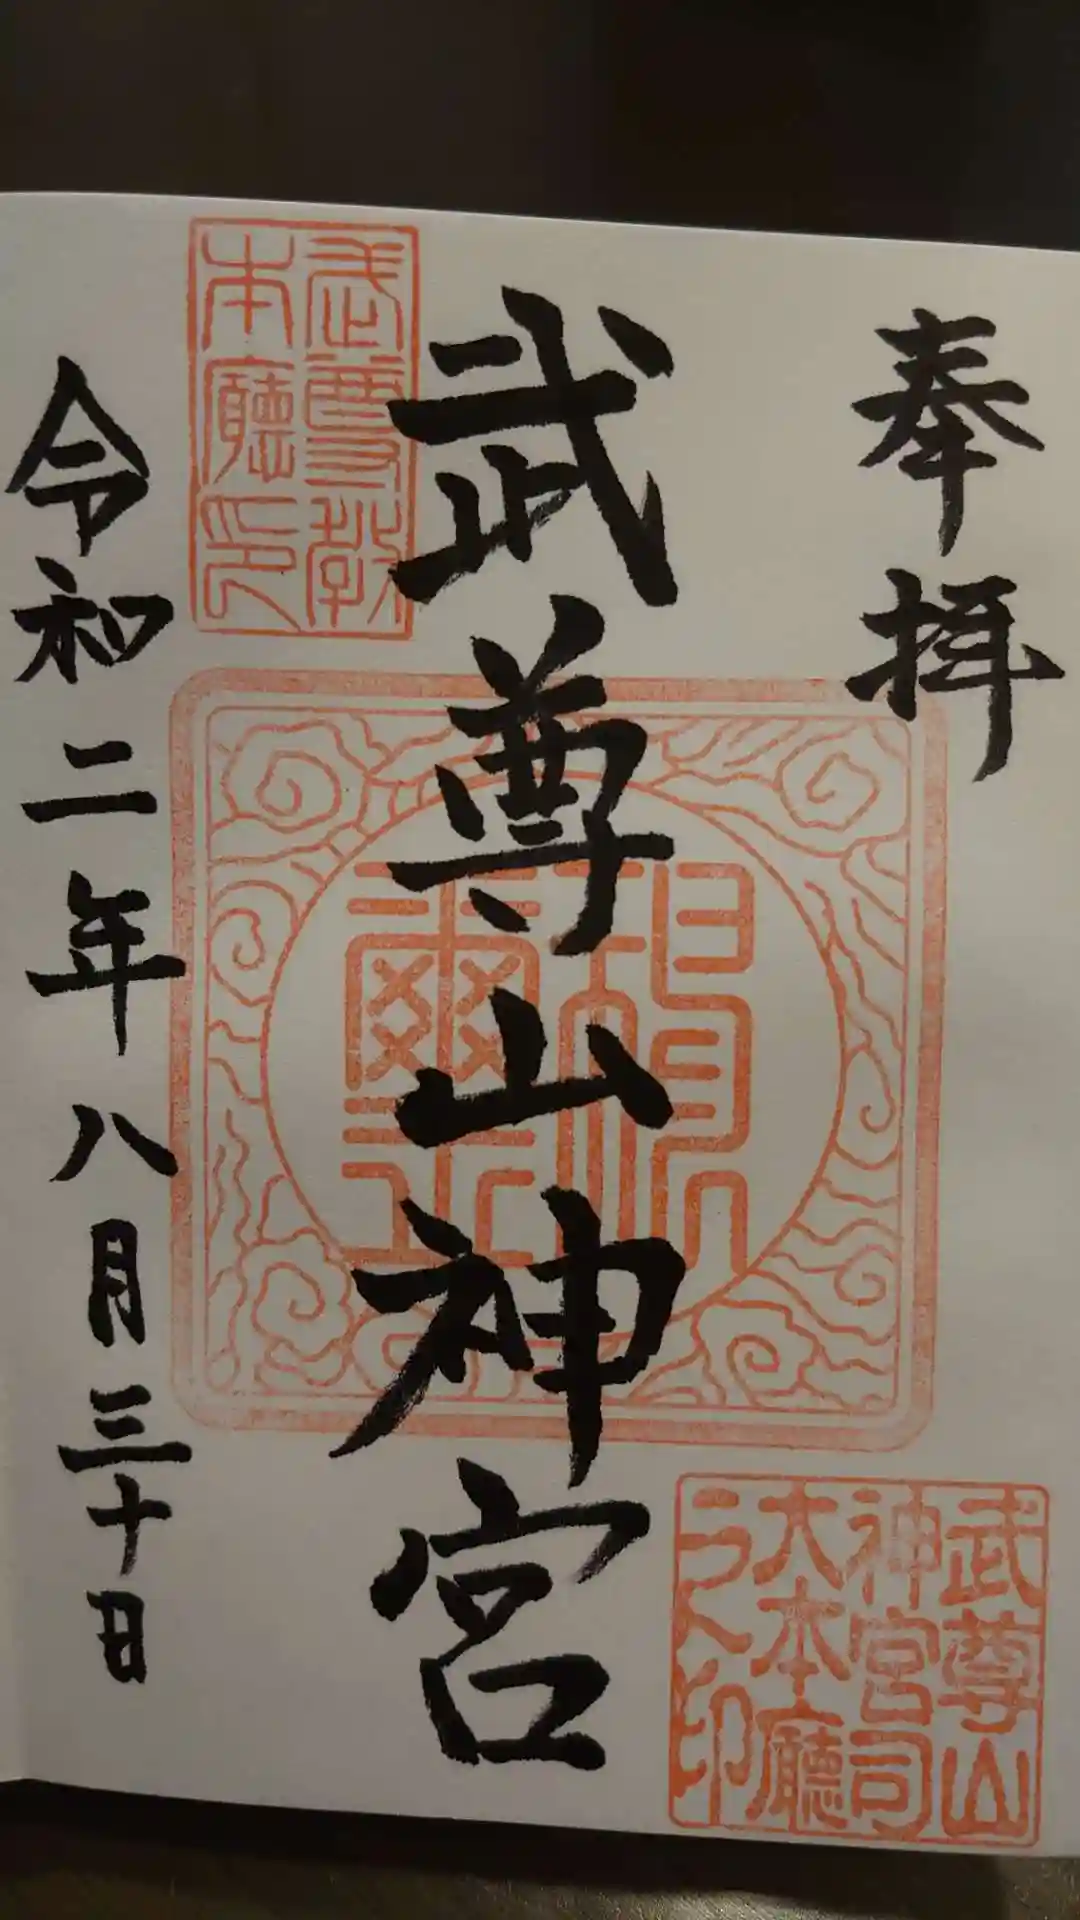 奉拝
武尊山神宮
令和二年八月三十日
武尊教
本廳印
武尊山
神宮司
大本廳
之印